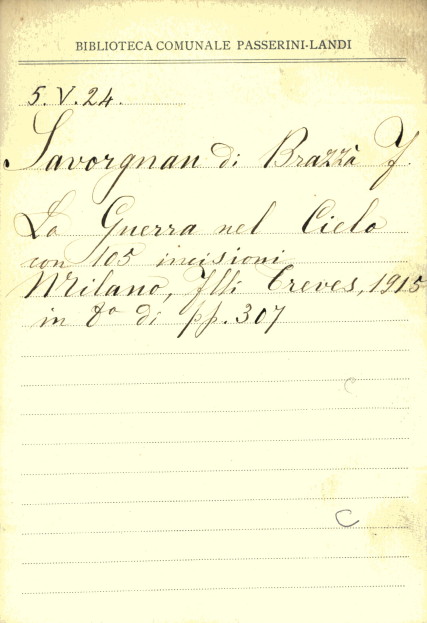 BIBLIOTECA COMUNALE PASSERINI-LANDI
5.V.24.
Savorgnan di Brazzà F.
La Guerra nel Cielo
con 105 incisioni
Milano, Flli Treves, 1915
in 8° di pp. 307
C